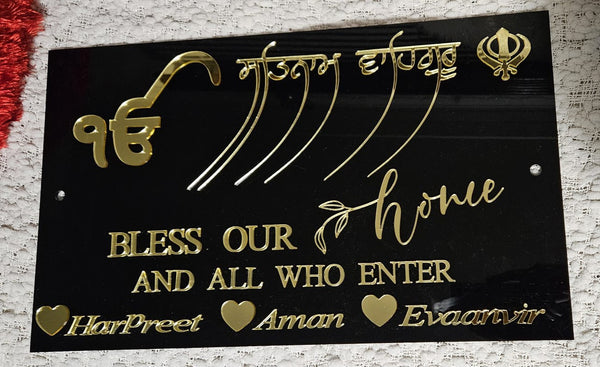 ੴ ਸਤਿਨਾਮ ਵਾਹਿਗੁਰੂ
BLESS OUR home
AND ALL WHO ENTER
HarPreet Aman Evaanvir